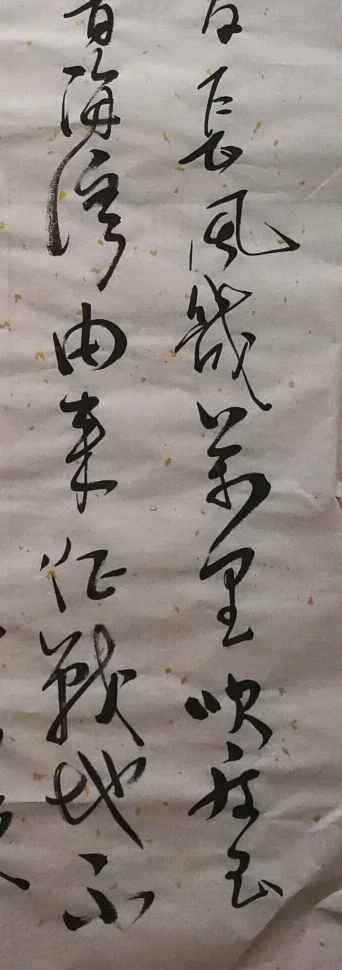 長風幾萬里吹度玉
青海灣由來征戰地不